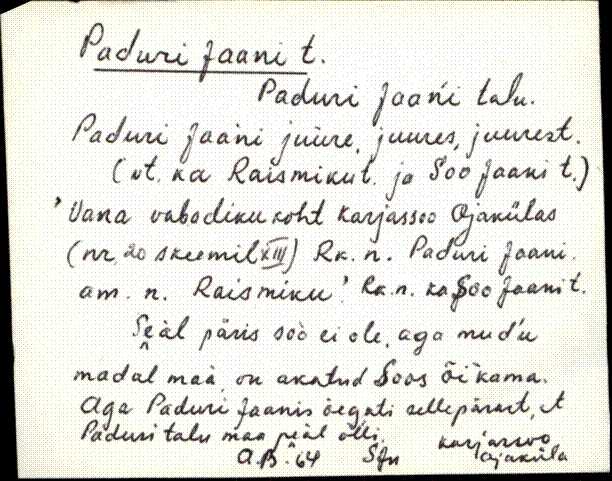 Paduri Jaani t.
Paduri Jaani talu.
Paduri Jaani juure, juures, juurest.
(vt. ka Raismiku t. ja Soo Jaani t.)
'Vana vabadiku koht Karjassoo Ojakülas
(nr. 20 skeemil XIII) Rk. n. Paduri Jaani.
am. n. Raismiku'. Rk. n. ka Soo Jaani t.
Seäl päris soo ei ole, aga mud'u
madal maa, on akatud Soos õikama.
Aga Paduri Jaanis õegati sellepärast, et
Paduri talu maa peal õlli.
Karjassoo
A.B. '64 SJn Ojaküla